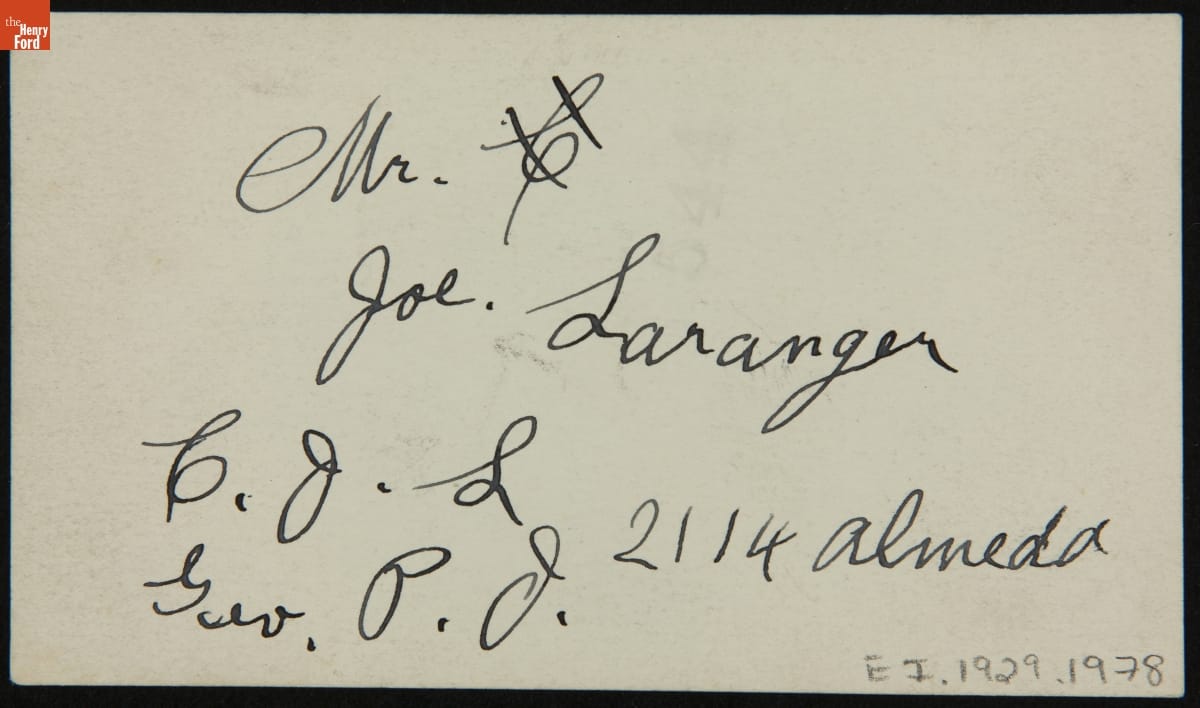 the
Henry
Ford
Mr.
Joe. Laranger
C. J. L
2114 Almeda
Geo. P. J.
EI.1929.1978